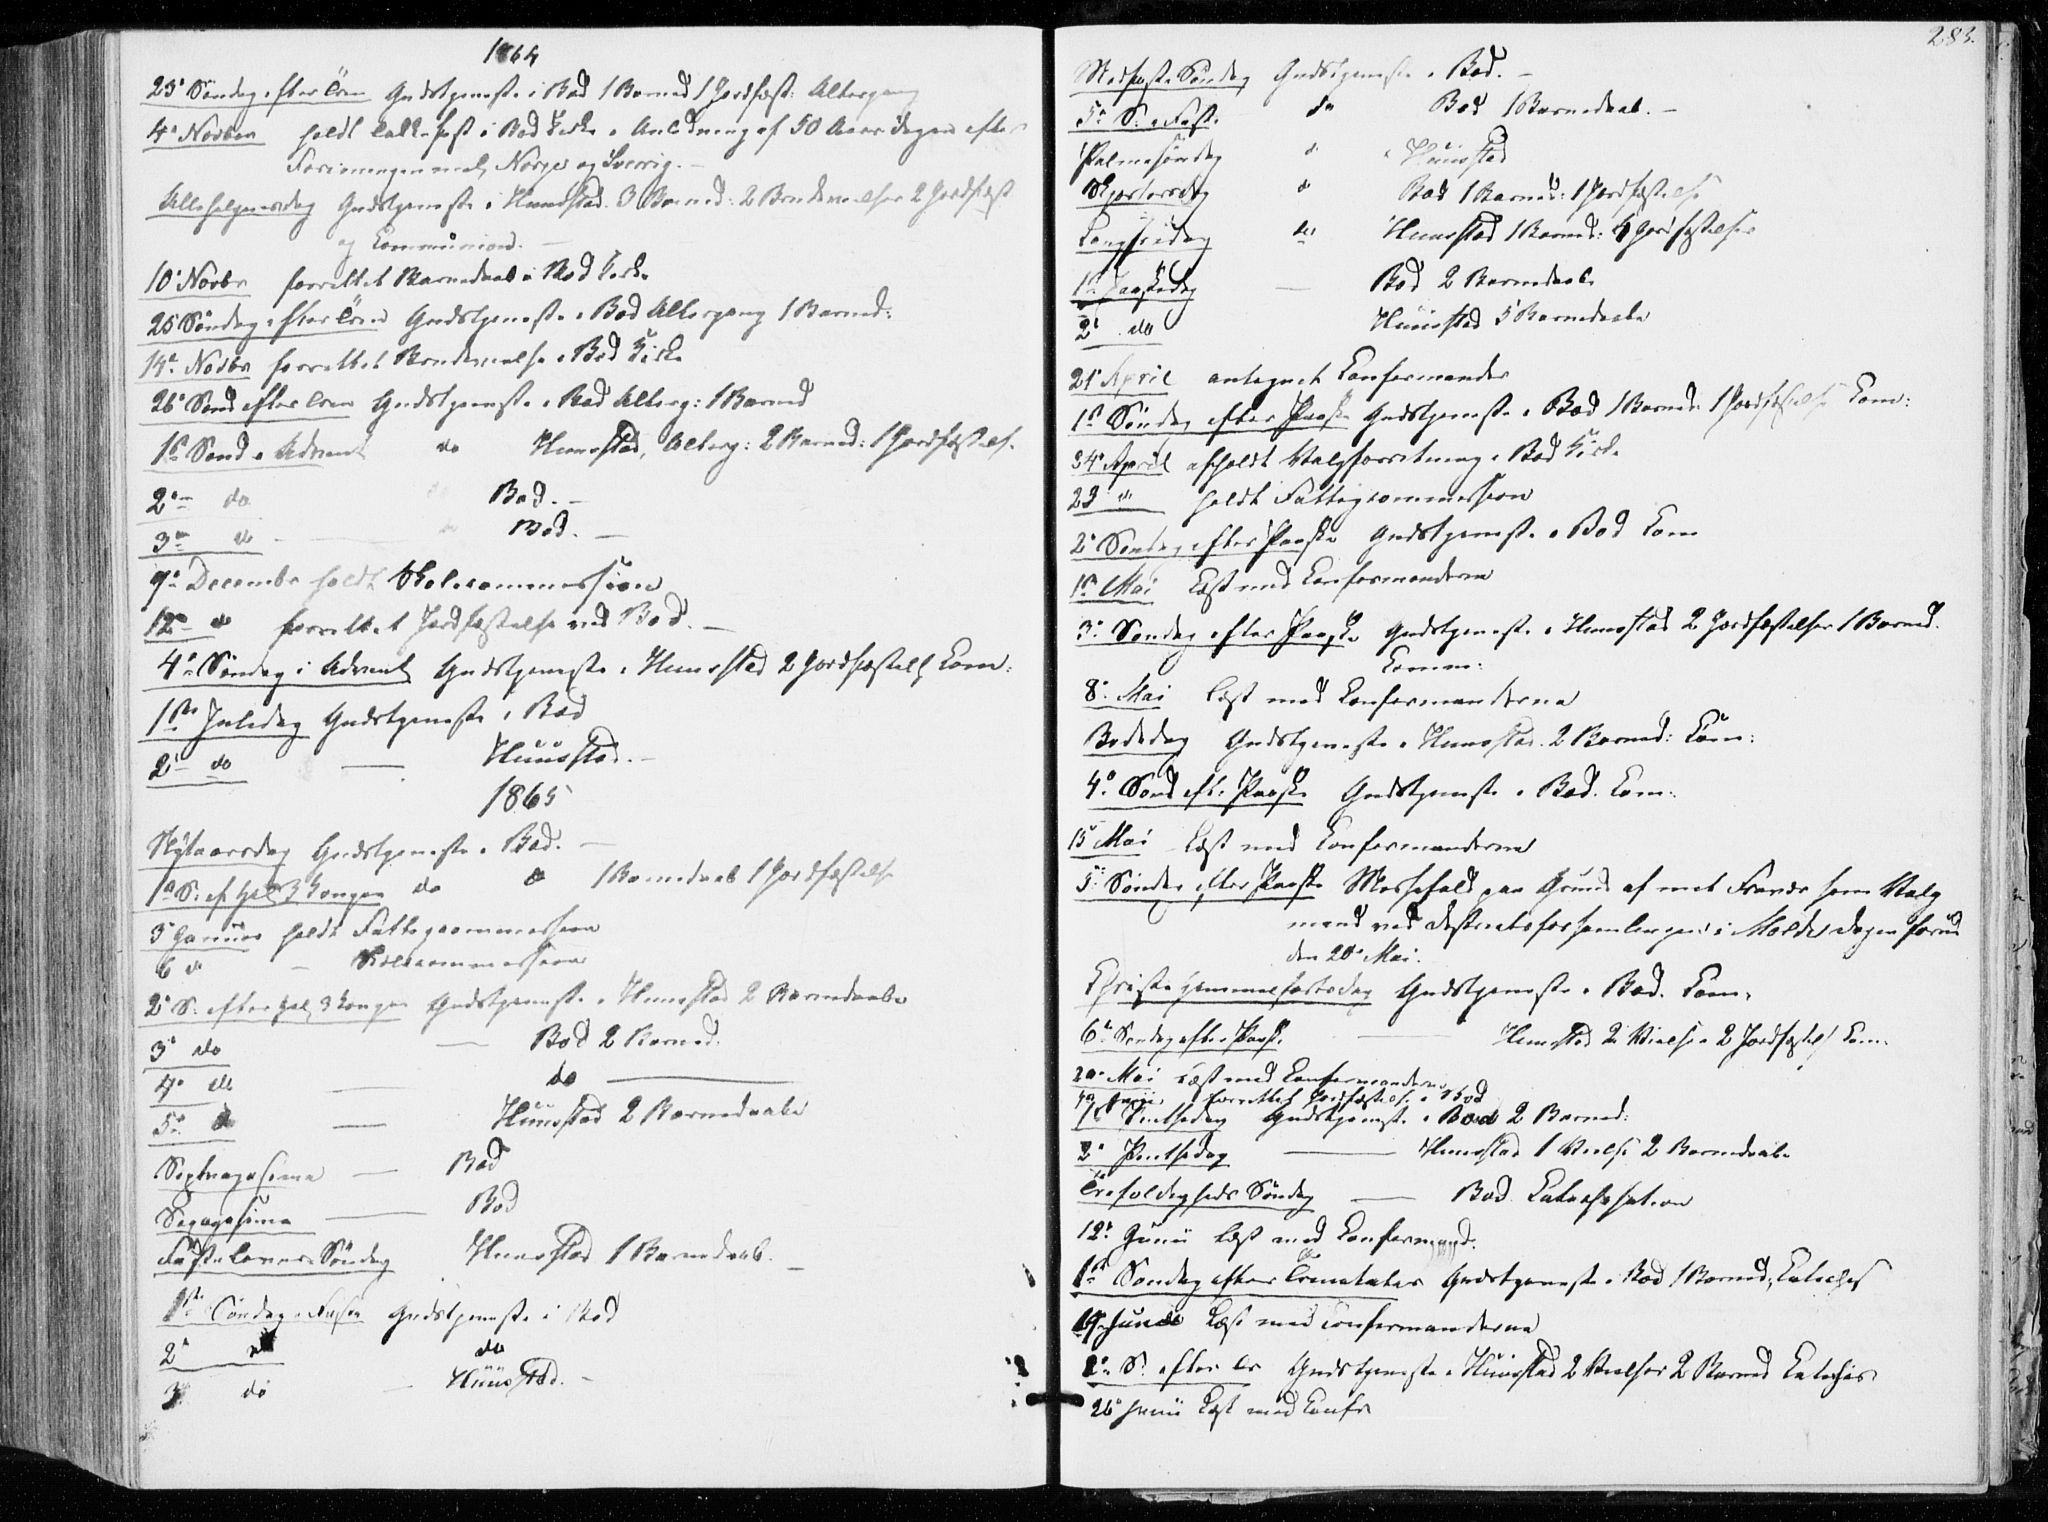 1864
23de Søndag efter Trin Gudstjeneste i Bod 1 Barned 1 Jordfæst: Altergang
4de Novbr holdt Takkefest i Bod Kirke i Anledning af 50 Aars Dagen efter
Foreningen mel. Norge og Sverrig. —
Allehelgensdag Gudstjeneste i Huustad. 3 Barned: 2 Brudevielser 2 Jordfæst
og Communion. —
10de Novbr forrettet Barnedaab i Bod Kirke
25de Søndag efter Trin Gudstjeneste i Bod Altergang 1 Barned:
14de Novbr forrettet Brudevielse i Bod Kirke
26de Sønd efter Trin Gudstjeneste i Bod Alterg: 1 Barned
1ste Sønd i Advent do Huustad, Alterg: 2 Barned: 1 Jordfæstelse.
2den do do Bod. —
3die do do Bod. —
9de Decembr holdt Skolecommission
12te do forrettet Jordfæstelse ved Bod. —
4de Søndag i Advent Gudstjeneste i Huustad 2 Jordfæstels Com:
1ste Juledag Gudstjeneste i Bod
2den do — Huustad. —
1865
Nytaarsdag Gudstjeneste i Bod. —
1ste S. ef. hel. 3 Konger do do 1 Barnedaab 1 Jordfæstelse
5 Januar holdt Fattigcommission
6 do — Skolecommission
2den S. efter hel. 3 Konger Gudstjeneste i Huustad 2 Barnedaabe
3die do — Bod 2 Barned.
4de do — do —
5te do — Huustad 2 Barnedaabe
Septuagesima — Bod
Sexagesima — Bod
Fastelavns Søndag Huustad 1 Barnedaab. —
1ste Søndag i Fasten Gudstjeneste i Bod
2den do do
3 do — Huustad. —
283.
Midfaste Søndag Gudstjeneste i Bod. —
5te S. i Fast. do Bod 1 Barnedaab. —
Palmesøndag do i Huustad
Skjertorsdag do Bod 1 Barned: 1 Jordfæstelse
Langfredag do Huustad 1 Barned: 4 Jordfæstelser
1ste Paaskedag — Bod 2 Barnedaabe
2den do Huustad 5 Barnedaabe
21de April antegnet Confirmander
1ste Søndag efter Paaske Gudstjeneste i Bod 1 Barned: 1 Jordfæstelse Com:
24de April afholdt Valgforretning i Bod Kirke
do holdt Fattigcommission
2den Søndag efter Paaske Gudstjeneste i Bod Com
1ste Mai Læst med Confirmanderne
3die Søndag efter Paaske Gudstjeneste i Huustad 2 Jordfæstelser 1 Barned.
Comm:
8de Mai læst med Confirmanderne
Bededag Gudstjeneste i Huustad. 2 Barned: Com:
4de Sønd eft. Paaske Gudstjeneste i Bod. Com:
15 Mai Læst med Confirmanderne
5te Søndag efter Paaske Messefald paa Grund af mit Fravær som Valg
mand ved Distriktsforsamlingen i Molde Dagen forud
den 20de Mai.
Christi Himmelfartsdag Gudstjeneste i Bod. Com.
6te Søndag efter Paask. — Huustad 2 Vielser 2 Jordfæstels Com.
Mai Læst med Confirmanderne
forrettet Jordfæstelse i Bod
1ste Pintsedag Gudstjeneste i Bod 2 Barned:
2den Pintsedag — Huustad 1 Vielse 2 Barnedaabe
Trefoldigheds Søndag — Bod Catechisation
12te Junii læst med Confirmand.
1ste Søndag efter Trinitatis Gudstjeneste i Bod 1 Barned, Cateches
19de Junii Læst med Confirmanderne
2den S. efter Tr Gudstjeneste i Huustad 2 Vielser 2 Barned Cateches
26de Junii Læst med Confir